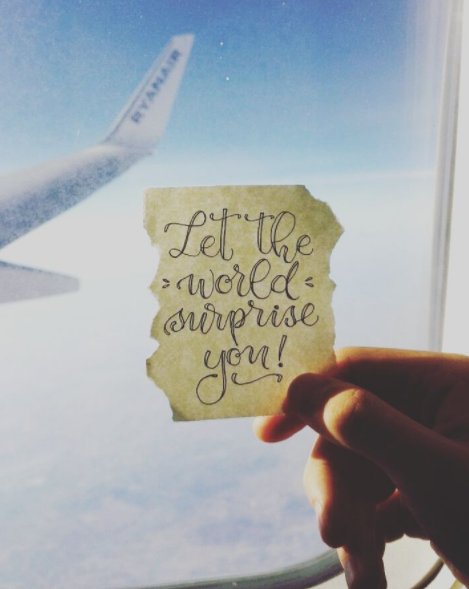 RYANAIR
Let the
world
surprise
you!